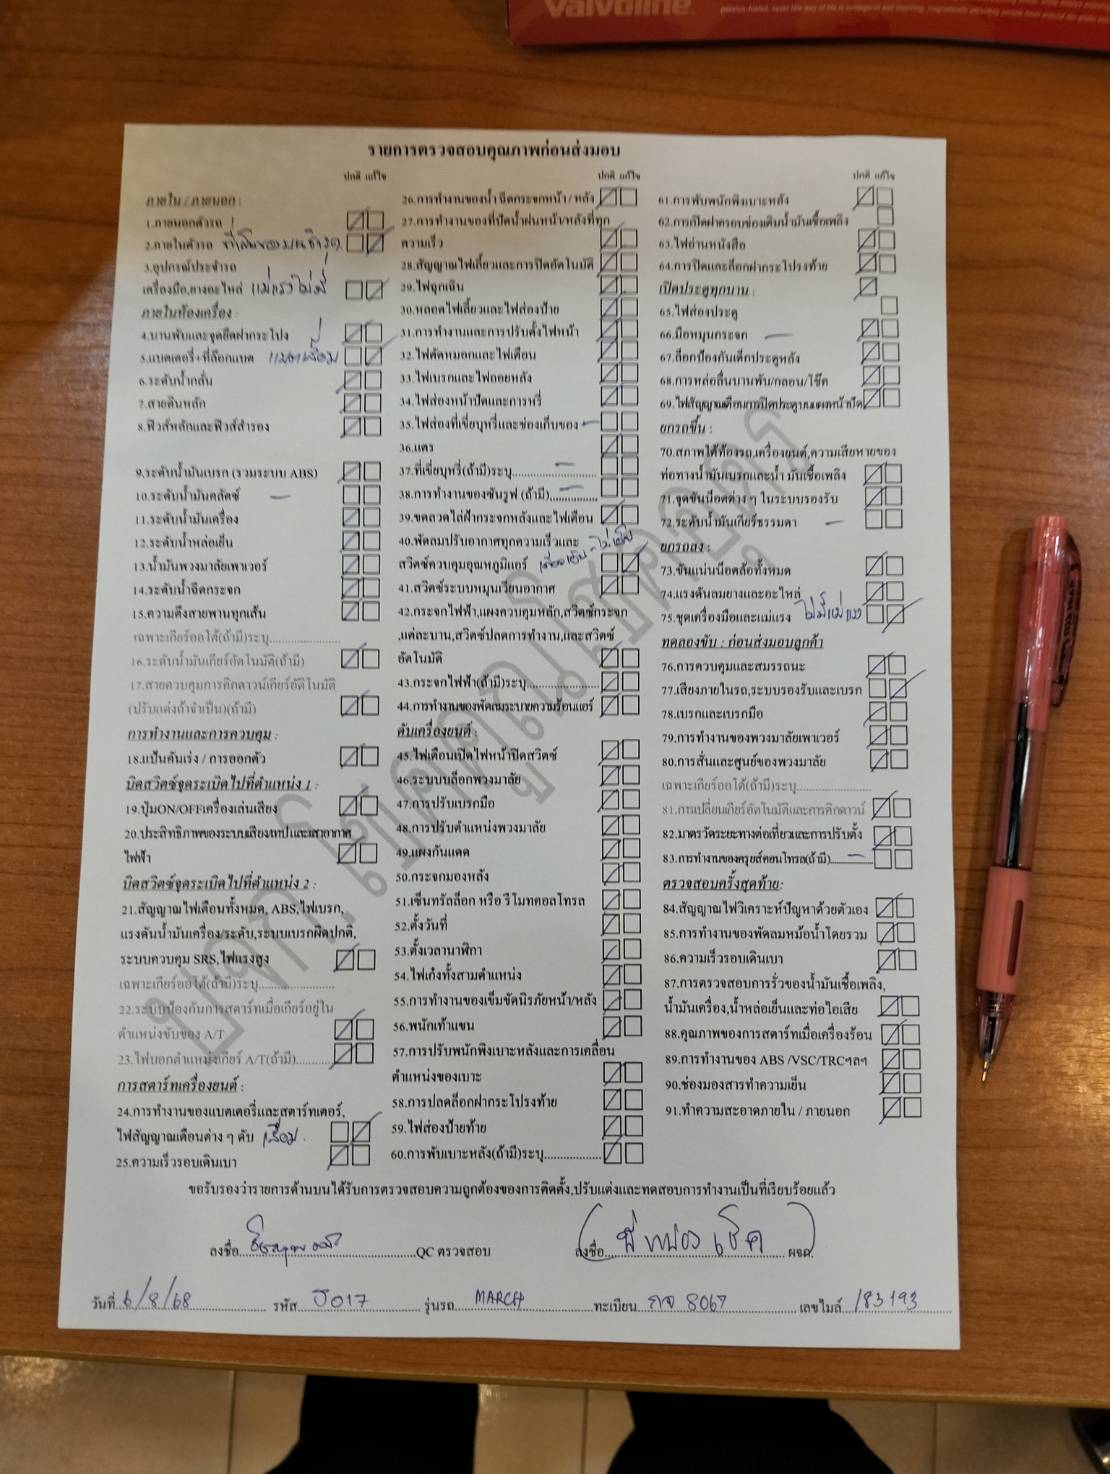 Valvoline
รายการตรวจสอบคุณภาพก่อนส่งมอบ
ปกติ แก้ไข
ภายใน / ภายนอก :
1.ภายนอกตัวรถ
2.ภายในตัวรถ
3.อุปกรณ์ประจำรถ
เครื่องมือ,ยางอะไหล่ แม่แรงไม่มี
ภายในห้องเครื่อง :
4.บานพับและจุดยึดฝากระโปง
5.แบตเตอรี่+ที่ล็อกแบต แบตเสื่อม
6.ระดับน้ำกลั่น
7.สายดินหลัก
8.ฟิวส์หลักและฟิวส์สำรอง
9.ระดับน้ำมันเบรก (รวมระบบ ABS)
10.ระดับน้ำมันคลัตซ์
11.ระดับน้ำมันเครื่อง
12.ระดับน้ำหล่อเย็น
13.น้ำมันพวงมาลัยเพาเวอร์
14.ระดับน้ำฉีดกระจก
15.ความตึงสายพานทุกเส้น
เฉพาะเกียร์ออโต้(ถ้ามี)ระบุ
16.ระดับน้ำมันเกียร์อัตโนมัติ(ถ้ามี)
17.สายควบคุมการคิกดาวน์เกียร์อัตโนมัติ
(ปรับแต่งถ้าจำเป็น)(ถ้ามี)
การทำงานและการควบคุม :
18.แป้นคันเร่ง / การออกตัว
บิดสวิตซ์จุดระเบิดไปที่ตำแหน่ง 1 :
19.ปุ่มON/OFFเครื่องเล่นเสียง
20.ประสิทธิภาพของระบบเสียงเทปและเสาอากาศ
ไฟฟ้า
บิดสวิตซ์จุดระเบิดไปที่ตำแหน่ง 2 :
21.สัญญาณไฟเตือนทั้งหมด, ABS,ไฟเบรก,
แรงดันน้ำมันเครื่อง/ระดับ,ระบบเบรกผิดปกติ,
ระบบควบคุม SRS,ไฟแรงสูง
เฉพาะเกียร์ออโต้(ถ้ามี)ระบุ
22.ระบบป้องกันการสตาร์ทเมื่อเกียร์อยู่ใน
ตำแหน่งขับของ A/T
23.ไฟบอกตำแหน่งเกียร์ A/T(ถ้ามี)
การสตาร์ทเครื่องยนต์ :
24.การทำงานของแบตเตอรี่และสตาร์ทเตอร์,
ไฟสัญญาณเตือนต่าง ๆ ดับ เสื่อม
25.ความเร็วรอบเดินเบา
ปกติ แก้ไข
26.การทำงานของน้ำ ฉีดกระจกหน้า / หลัง
27.การทำงานของที่ปัดน้ำฝนหน้า/หลังที่ทุก
ความเร็ว
28.สัญญาณไฟเลี้ยวและการปิดอัตโนมัติ
29.ไฟฉุกเฉิน
30.หลอดไฟเลี้ยวและไฟส่องป้าย
31.การทำงานและการปรับตั้งไฟหน้า
32.ไฟตัดหมอกและไฟเตือน
33.ไฟเบรกและไฟถอยหลัง
34.ไฟส่องหน้าปัดและการหรี่
35.ไฟส่องที่เขี่ยบุหรี่และช่องเก็บของ
36.แตร
37.ที่เขี่ยบุหรี่(ถ้ามี)ระบุ
38.การทำงานของซันรูฟ (ถ้ามี)
39.ขดลวดไล่ฝ้ากระจกหลังและไฟเตือน
40.พัดลมปรับอากาศทุกความเร็วและ
สวิตซ์ควบคุมอุณหภูมิแอร์
41.สวิตซ์ระบบหมุนเวียนอากาศ
42.กระจกไฟฟ้า,แผงควบคุมหลัก,สวิตซ์กระจก
,แต่ละบาน,สวิตซ์ปลดการทำงาน,และสวิตซ์
อัตโนมัติ
43.กระจกไฟฟ้า(ถ้ามี)ระบุ
44.การทำงานของพัดลมระบายความร้อนแอร์
ดับเครื่องยนต์ :
45.ไฟเตือนเปิดไฟหน้าปิดสวิตซ์
46.ระบบบล็อกพวงมาลัย
47.การปรับเบรกมือ
48.การปรับตำแหน่งพวงมาลัย
49.แผงกันแดด
50.กระจกมองหลัง
51.เซ็นทรัลล็อก หรือ รีโมทคอลโทรล
52.ตั้งวันที่
53.ตั้งเวลานาฬิกา
54.ไฟเก๋งทั้งสามตำแหน่ง
55.การทำงานของเข็มขัดนิรภัยหน้า/หลัง
56.พนักเท้าแขน
57.การปรับพนักพิงเบาะหลังและการเคลื่อน
ตำแหน่งของเบาะ
58.การปลดล็อกฝากระโปรงท้าย
59.ไฟส่องป้ายท้าย
60.การพับเบาะหลัง(ถ้ามี)ระบุ
ปกติ แก้ไข
61.การพับพนักพิงเบาะหลัง
62.การเปิดฝาครอบช่องเติมน้ำมันเชื้อเพลิง
63.ไฟอ่านหนังสือ
64.การปิดและล็อกฝากระโปรงท้าย
เปิดประตูทุกบาน :
65.ไฟส่องประตู
66.มือหมุนกระจก
67.ล็อกป้องกันเด็กประตูหลัง
68.การหล่อลื่นบานพับ/กลอน/โช๊ค
69.ไฟสัญญาณเตือนการปิดประตูบนแผงหน้าปัด
ยกรถขึ้น :
70.สภาพใต้ท้องรถ,เครื่องยนต์,ความเสียหายของ
ท่อทางน้ำมันเบรกและน้ำ มันเชื้อเพลิง
71.จุดขันน็อตต่าง ๆ ในระบบรองรับ
72.ระดับน้ำมันเกียร์ธรรมดา
ยกรถลง :
73.ขันแน่นน็อตล้อทั้งหมด
74.แรงดันลมยางและอะไหล่
75.ชุดเครื่องมือและแม่แรง ไม่มีแม่แรง
ทดลองขับ : ก่อนส่งมอบลูกค้า
76.การควบคุมและสมรรถนะ
77.เสียงภายในรถ,ระบบรองรับและเบรก
78.เบรกและเบรกมือ
79.การทำงานของพวงมาลัยเพาเวอร์
80.การสั่นและศูนย์ของพวงมาลัย
เฉพาะเกียร์ออโต้(ถ้ามี)ระบุ
81.การเปลี่ยนเกียร์อัตโนมัติและการคิกดาวน์
82.มาตรวัดระยะทางต่อเที่ยวและการปรับตั้ง
83.การทำงานของครุยส์คอนโทรล(ถ้ามี)
ตรวจสอบครั้งสุดท้าย:
84.สัญญาณไฟวิเคราะห์ปัญหาด้วยตัวเอง
85.การทำงานของพัดลมหม้อน้ำโดยรวม
86.ความเร็วรอบเดินเบา
87.การตรวจสอบการรั่วของน้ำมันเชื้อเพลิง,
น้ำมันเครื่อง,น้ำหล่อเย็นและท่อไอเสีย
88.คุณภาพของการสตาร์ทเมื่อเครื่องร้อน
89.การทำงานของ ABS /VSC/TRCฯลฯ
90.ช่องมองสารทำความเย็น
91.ทำความสะอาดภายใน / ภายนอก
ขอรับรองว่ารายการด้านบนได้รับการตรวจสอบความถูกต้องของการติดตั้ง,ปรับแต่งและทดสอบการทำงานเป็นที่เรียบร้อยแล้ว
ลงชื่อ QC ตรวจสอบ ลงชื่อ ผจก.
วันที่ 6/8/68 รหัส J017 รุ่นรถ MARCH ทะเบียน กจ 8067 เลขไมล์ 183193